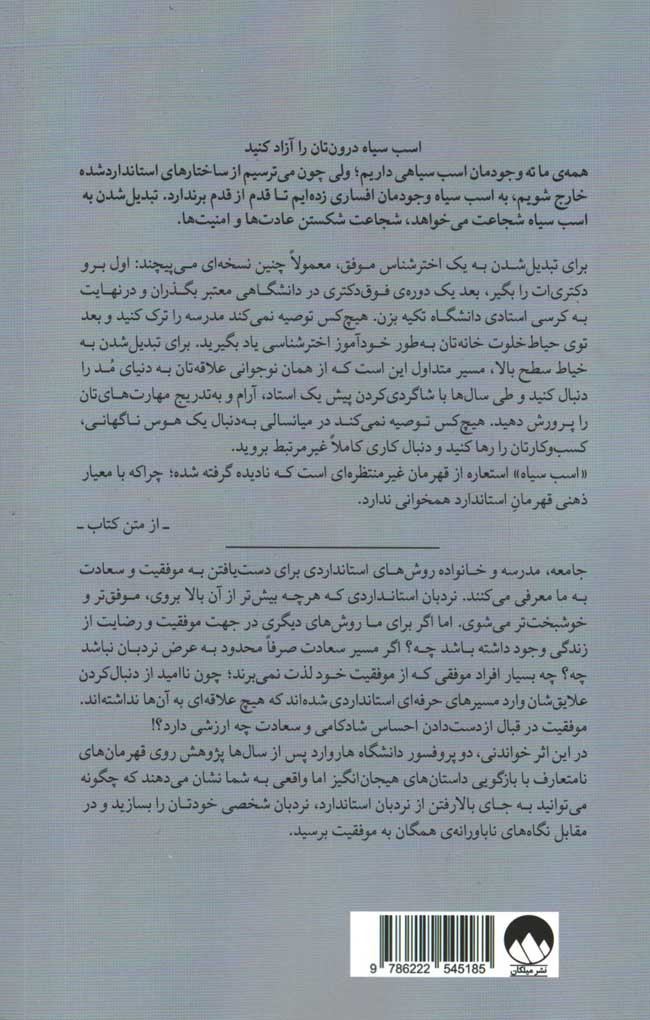 اسب سیاه درون‌تان را آزاد کنید
همه‌ی ما ته وجودمان اسب سیاهی داریم؛ ولی چون می‌ترسیم از ساختارهای استانداردشده
خارج شویم، به اسب سیاه وجودمان افساری زده‌ایم تا قدم از قدم برندارد. تبدیل‌شدن به
اسب سیاه شجاعت می‌خواهد، شجاعت شکستن عادت‌ها و امنیت‌ها.
برای تبدیل‌شدن به یک اخترشناس موفق، معمولاً چنین نسخه‌ای می‌پیچند: اول برو
دکتری‌ات را بگیر، بعد یک دوره‌ی فوق‌دکتری در دانشگاهی معتبر بگذران و درنهایت
به کرسی استادی دانشگاه تکیه بزن. هیچ‌کس توصیه نمی‌کند مدرسه را ترک کنید و بعد
توی حیاط‌خلوت خانه‌تان به‌طور خودآموز اخترشناسی یاد بگیرید. برای تبدیل‌شدن به
خیاط سطح بالا، مسیر متداول این است که از همان نوجوانی علاقه‌تان به دنیای مُد را
دنبال کنید و طی سال‌ها با شاگردی‌کردن پیش یک استاد، آرام و به‌تدریج مهارت‌های‌تان
را پرورش دهید. هیچ‌کس توصیه نمی‌کند در میانسالی به‌دنبال یک هوس ناگهانی،
کسب‌وکارتان را رها کنید و دنبال کاری کاملاً غیرمرتبط بروید.
«اسب سیاه» استعاره از قهرمان غیرمنتظره‌ای است که نادیده گرفته شده؛ چراکه با معیار
ذهنی قهرمانِ استاندارد همخوانی ندارد.
ـ از متن کتاب ـ
جامعه، مدرسه و خانواده روش‌های استانداردی برای دست‌یافتن به موفقیت و سعادت
به ما معرفی می‌کنند. نردبان استانداردی که هرچه بیش‌تر از آن بالا بروی، موفق‌تر و
خوشبخت‌تر می‌شوی. اما اگر برای ما روش‌های دیگری در جهت موفقیت و رضایت از
زندگی وجود داشته باشد چه؟ اگر مسیر سعادت صرفاً محدود به عرض نردبان نباشد
چه؟ چه بسیار افراد موفقی که از موفقیت خود لذت نمی‌برند؛ چون ناامید از دنبال‌کردن
علایق‌شان وارد مسیرهای حرفه‌ای استانداردی شده‌اند که هیچ علاقه‌ای به آن‌ها نداشته‌اند.
موفقیت در قبال ازدست‌دادن احساس شادکامی و سعادت چه ارزشی دارد؟!
در این اثر خواندنی، دو پروفسور دانشگاه هاروارد پس از سال‌ها پژوهش روی قهرمان‌های
نامتعارف با بازگویی داستان‌های هیجان‌انگیز اما واقعی به شما نشان می‌دهند که چگونه
می‌توانید به جای بالارفتن از نردبان استاندارد، نردبان شخصی خودتان را بسازید و در
مقابل نگاه‌های ناباورانه‌ی همگان به موفقیت برسید.
نشر میلکان
9 786222 545185